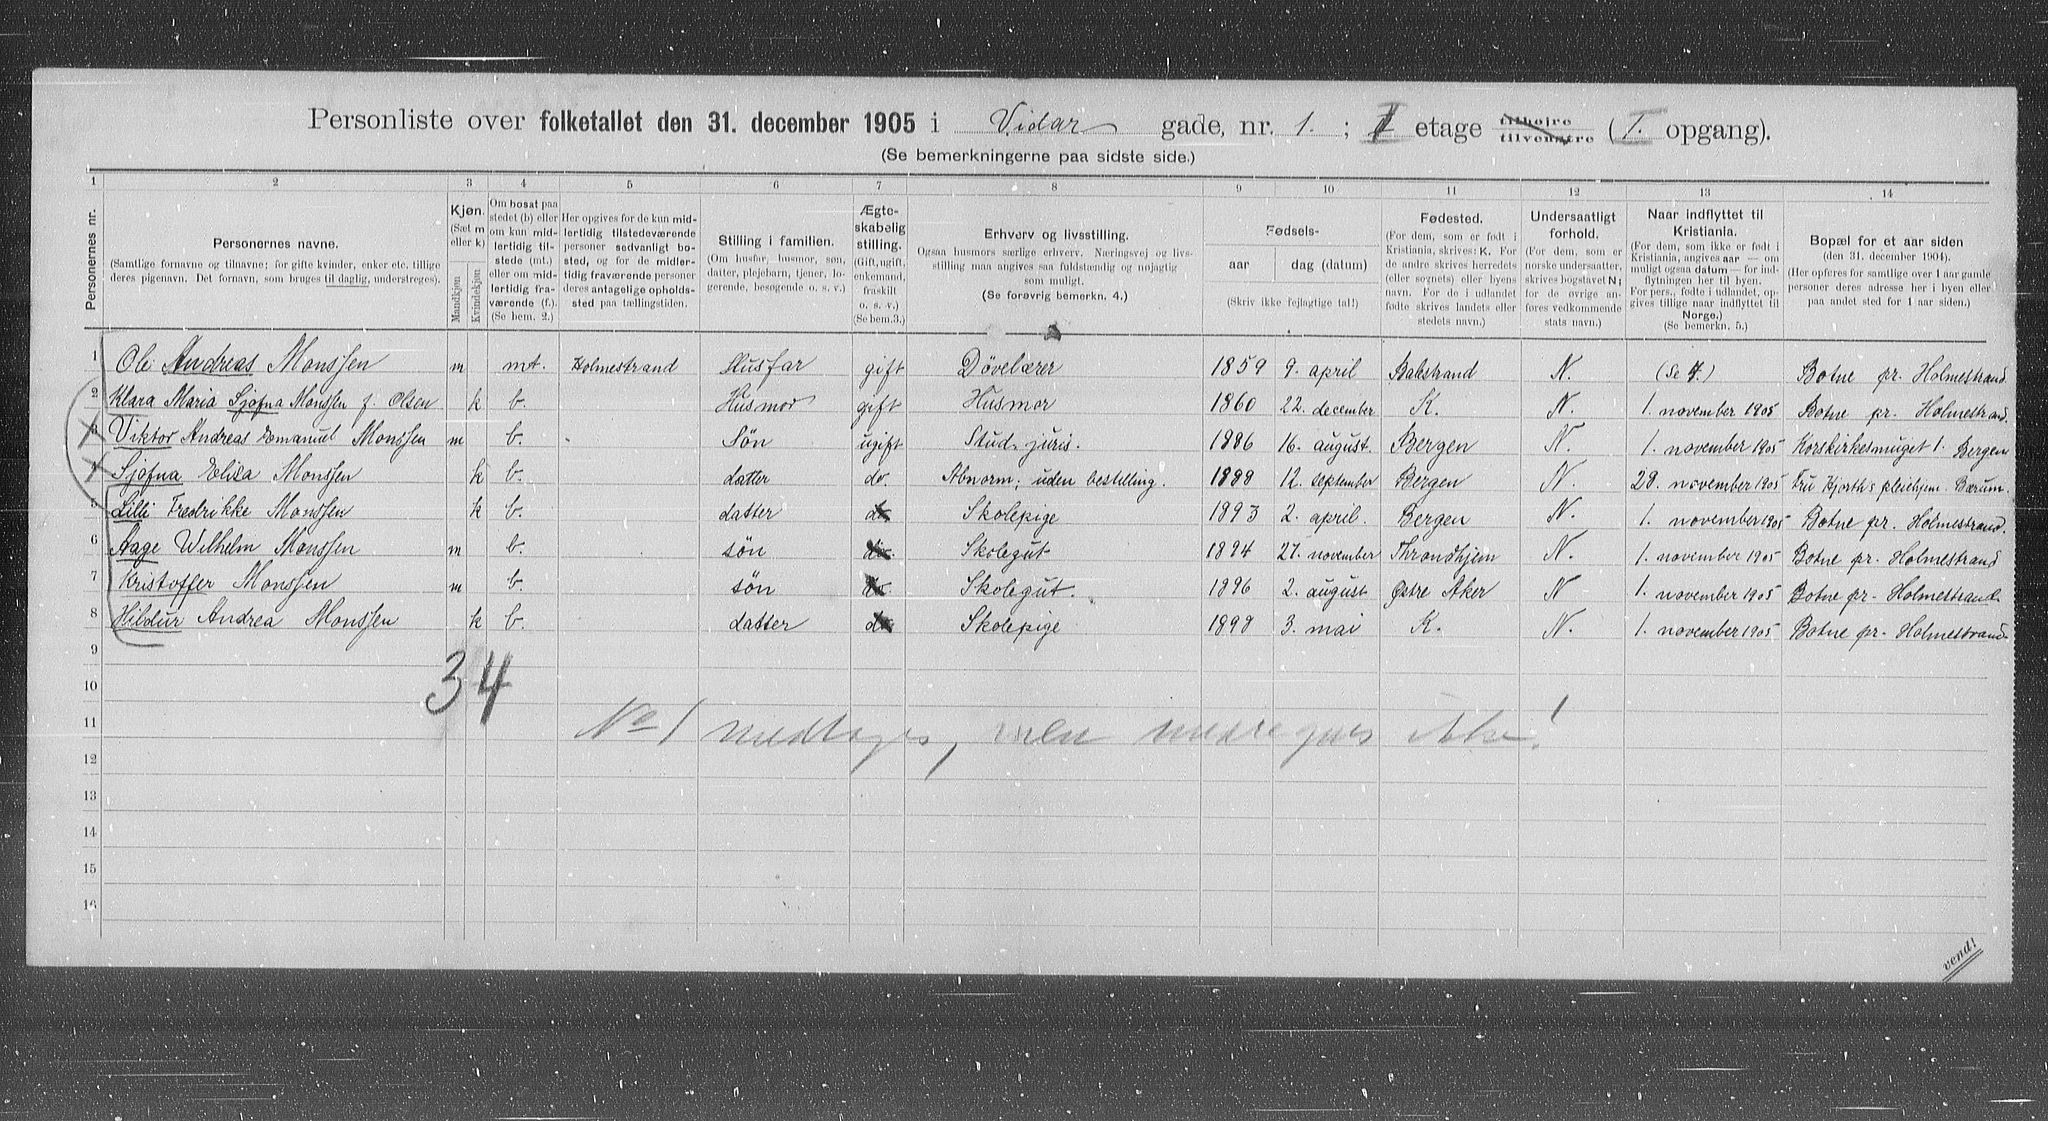 Personliste over folketallet den 31. december 1905 i Vidar gade, nr. 1. ; I etage tilhøjre tilvenstre (I. opgang).
(Se bemerkningerne paa sidste side.)
1 2 3 4 5 6 7 8 9 10 11 12 13 14
Personernes nr.
Personernes navne.
(Samtlige fornavne og tilnavne; for gifte kvinder, enker etc. tillige
deres pigenavn. Det fornavn, som bruges til daglig, understreges).
Kjøn.
(Sæt m
eller k)
Mandkjøn
Kvindekjøn
Om bosat paa
stedet (b) eller
om kun mid-
lertidig til-
stede (mt.)
eller om mid-
lertidig fra-
værende (f.)
(Se bem. 2.)
Her opgives for de kun mid-
lertidig tilstedeværende
personer sedvanligt bo-
sted, og for de midler-
tidig fraværende personer
deres antagelige opholds-
sted paa tællingstiden.
Stilling i familien.
(Om husfar, husmor, søn,
datter, plejebarn, tjener, lo-
gerende, besøgende o. s. v.)
Ægte-
skabelig
stilling.
(Gift, ugift,
enkemand,
fraskilt
o. s. v.)
(Se bem. 3.)
Erhverv og livsstilling.
Ogsaa husmors særlige erhverv. Næringsvej og livs-
stilling maa angives saa fuldstændig og nøjagtig
som muligt.
(Se forøvrig bemerkn. 4.)
Fødsels-
aar
dag (datum)
(Skriv ikke fejlagtige tal!)
Fødested.
(For dem, som er født i
Kristiania, skrives: K. For
de andre skrives herredets
(eller sognets) eller byens
navn. For de i udlandet
fødte skrives landets eller
stedets navn.)
Undersaatligt
forhold.
(For dem, som er
norske undersaatter,
skrives bogstavet N;
for de øvrige an-
føres vedkommende
stats navn.)
Naar indflyttet til
Kristiania.
(For dem, som ikke er født i
Kristiania, angives aar — om
muligt ogsaa datum — for ind-
flytningen her til byen.
For pers., fødte i udlandet, op-
gives tillige naar indflyttet til
Norge.)
(Se bemerkn. 5.)
Bopæl for et aar siden
(den 31. december 1904).
(Her opføres for samtlige over 1 aar gamle
personer deres adresse her i byen eller
paa andet sted for 1 aar siden.)
1 Ole Andreas Monssen m mt. Holmestrand Husfar gift Døvelærer 1859 9. april Bakstrand N. (Se 4.) Botne pr. Holmestrand
2 Klara Maria Sjøfna Monssen f. Olsen k b. Husmor gift Husmor 1860 22. december K. N. 1. november 1905 Botne pr. Holmestrand.
3 Viktor Andreas Emanuel Monssen m b. Søn ugift Stud. juris. 1886 16. august. Bergen N. 1. november 1905 Korskirkesmuget 1. Bergen
4 Sjøfna Elisa Monssen k b. datter do. Abnorm; uden bestilling. 1888 12. september Bergen N. 28. november 1905 Fru Hjorths pleiehjem. Bærum.
5 Lilli Fredrikke Monssen k b. datter do. Skolepige 1893 2. april. Bergen N. 1. november 1905 Botne pr. Holmestrand.
6 Aage Wilhelm Monssen m b. søn do. Skolegut 1894 27. november Throndhjem N. 1. november 1905 Botne pr. Holmestrand
7 Kristoffer Monssen m b. søn do. Skolegut. 1896 2. august Østre Aker N 1. november 1905 Botne pr. Holmestrand.
8 Hildur Andrea Monssen k b. datter do. Skolepige 1898 3. mai K. N. 1. november 1905 Botne pr. Holmestrand
9
34
10
11 No 1 medtages, men medregnes ikke!
12
13
14
15
16
vend!